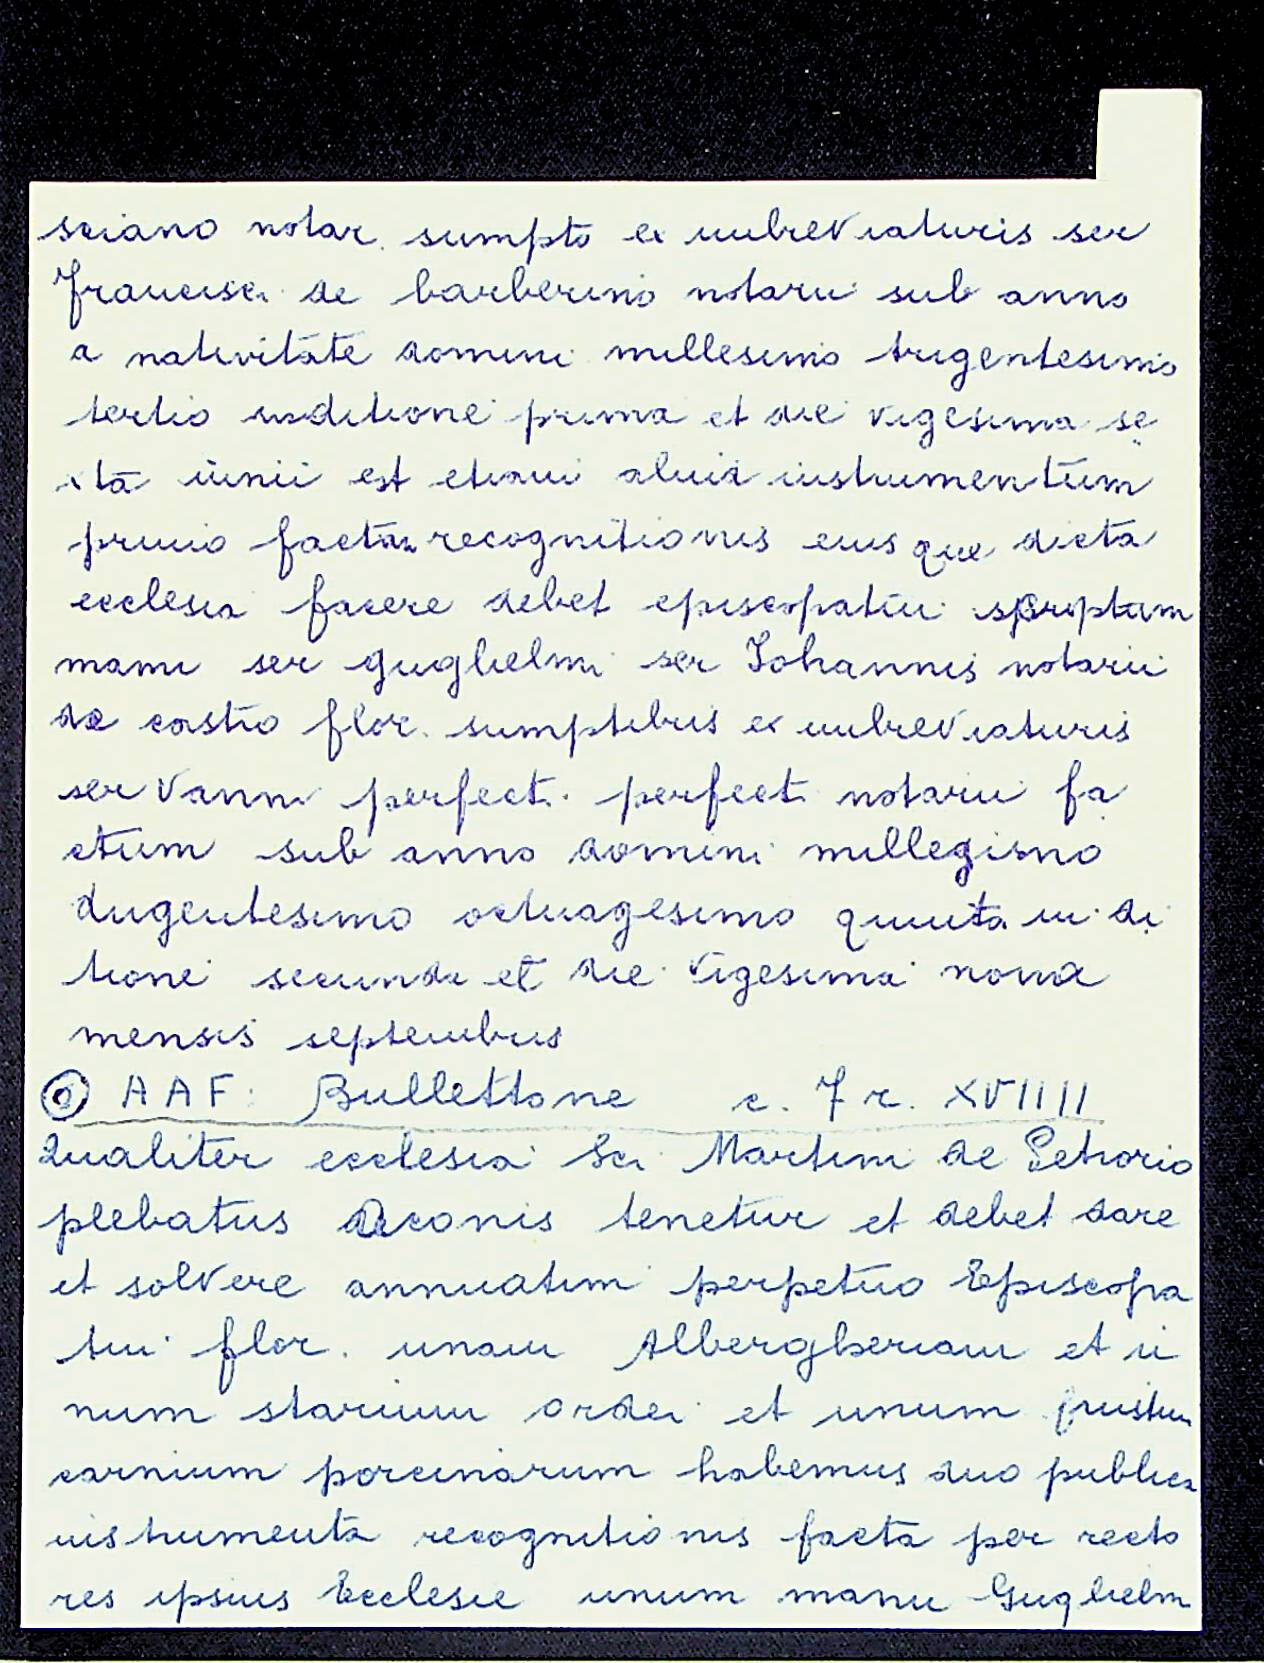 sciano notar. sumpto ex imbreviaturis ser
Francisci de barberino notarii sub anno
a nativitate domini millesimo trigentesimo
tertio inditione prima et die vigesima se
xta iunii est etiam aliud instrumentum
primo facta recognitionis eius que dicta
ecclesia facere debet episcopatui scriptum
manu ser guglielmi ser Iohannis notarii
de castro flor. sumptibus ex imbreviaturis
ser Vanni perfecti perfecti notarii fa
ctum sub anno domini millegismo
dugentesimo octuagesimo quinta in di
tione secunda et die vigesima nona
mensis septembris
AAF: Bullettone c. 7 r. XVIIII
Qualiter ecclesia Sci Martini de Petrorio
plebatus Deconis tenetur et debet dare
et solvere annuatim perpetuo Episcopa
tui flor. unam Albergheriam et u
num starium ordei et unum frustum
carnium porcinarum habemus duo publica
instrumenta recognitionis facta per recto
res ipsius Ecclesie unum manu Guglielm